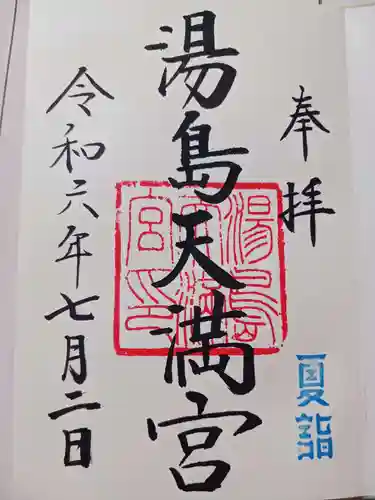 奉拝
湯島天満宮
令和六年七月二日
夏詣
湯島天満宮印